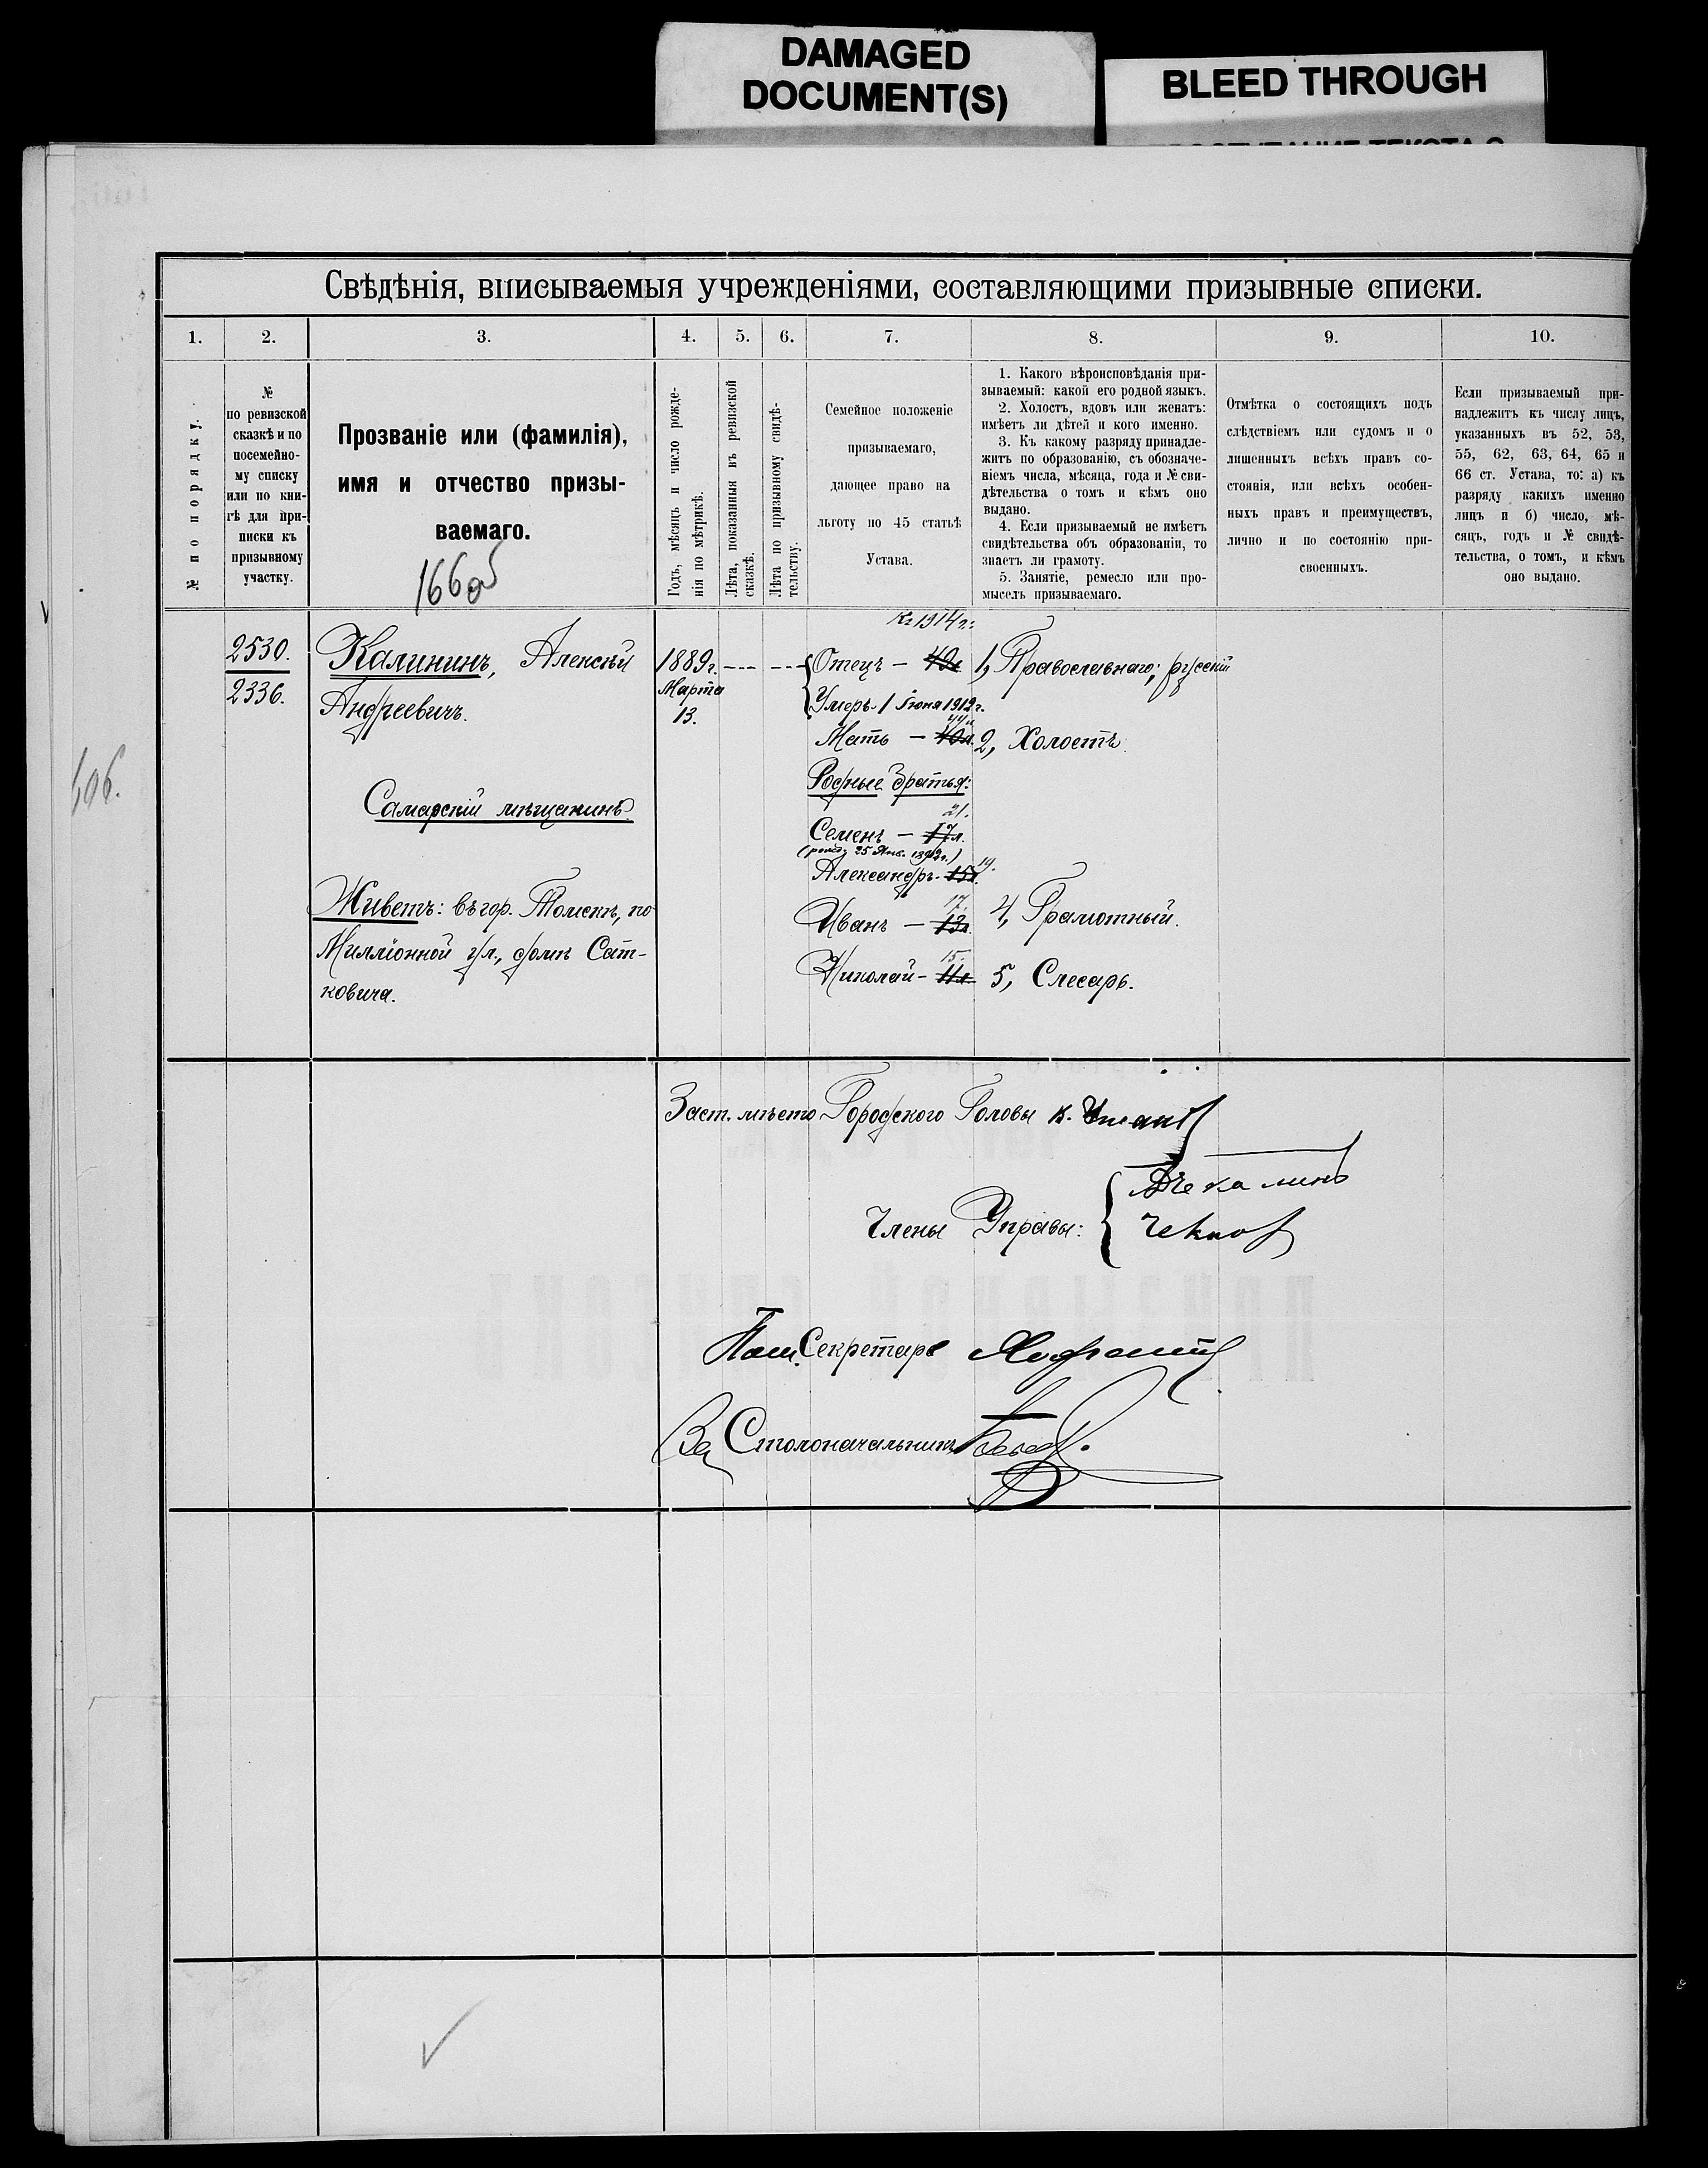 DAMAGED
DOCUMENT(S)
BLEED THROUGH
Свѣдѣнія, вписываемыя учрежденіями, составляющими призывные списки.
1.
2.
3.
4.
5.
6.
7.
8.
9.
10.
№ по порядку.
№
по ревизской
сказкѣ и по
посемейно-
му списку
или по кни-
гѣ для при-
писки къ
призывному
участку.
Прозваніе или (фамилія),
имя и отчество призы-
ваемаго.
166об
Годъ, мѣсяцъ и число рожде-
нія по мѣтрикѣ.
Лѣта, показанныя въ ревизской
сказкѣ.
Лѣта по призывному свидѣ-
тельству.
Семейное положеніе
призываемаго,
дающее право на
льготу по 45 статьѣ
Устава.
1. Какого вѣроисповѣданія при-
зываемый: какой его родной языкъ.
2. Холостъ, вдовъ или женатъ:
имѣетъ ли дѣтей и кого именно.
3. Къ какому разряду принадле-
житъ по образованію, съ обозначе-
ніемъ числа, мѣсяца, года и № сви-
дѣтельства о томъ и кѣмъ оно
выдано.
4. Если призываемый не имѣетъ
свидѣтельства объ образованіи, то
знаетъ ли грамоту.
5. Занятіе, ремесло или про-
мыселъ призываемаго.
Отмѣтка о состоящихъ подъ
слѣдствіемъ или судомъ и о
лишенныхъ всѣхъ правъ со-
стоянія, или всѣхъ особен-
ныхъ правъ и преимуществъ,
лично и по состоянію при-
своенныхъ.
Если призываемый при-
надлежитъ къ числу лицъ,
указанныхъ въ 52, 53,
55, 62, 63, 64, 65 и
66 ст. Устава, то: а) къ
разряду какихъ именно
лицъ и б) число, мѣ-
сяцъ, годъ и № свидѣ-
тельства, о томъ, и кѣмъ
оно выдано.
2530.
2336.
Калининъ, Алексѣй
Андреевичъ.
Самарскій мѣщанинъ
Живетъ: въ гор. Томскѣ, по
Милліонной ул., домъ Сат-
ковича.
1889г.
Марта
13.
Къ 1914 г.:
Отецъ —
Умеръ 1 Іюня 1912г.
44л
Мать — 40л.
Родные братья:
21.
Семенъ — 17л.
(рожд. 25 Янв. 1892г.)
19.
Александръ - 15л.
17.
Иванъ — 13л.
15.
Николай - 11л.
1, Православнаго; русскій
2, Холостъ
4, Грамотный.
5, Слесарь.
Заст. мѣсто Городского Головы
Члены Управы:
Чекалинъ
Пом. Секретаря
За Столоначальника